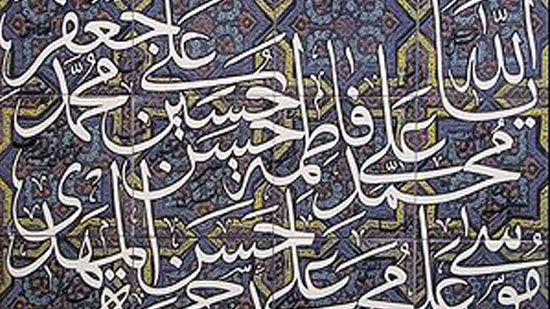 يا الله محمد علي فاطمة حسن حسين علي محمد جعفر
موسى علي محمد علي حسن المهدي